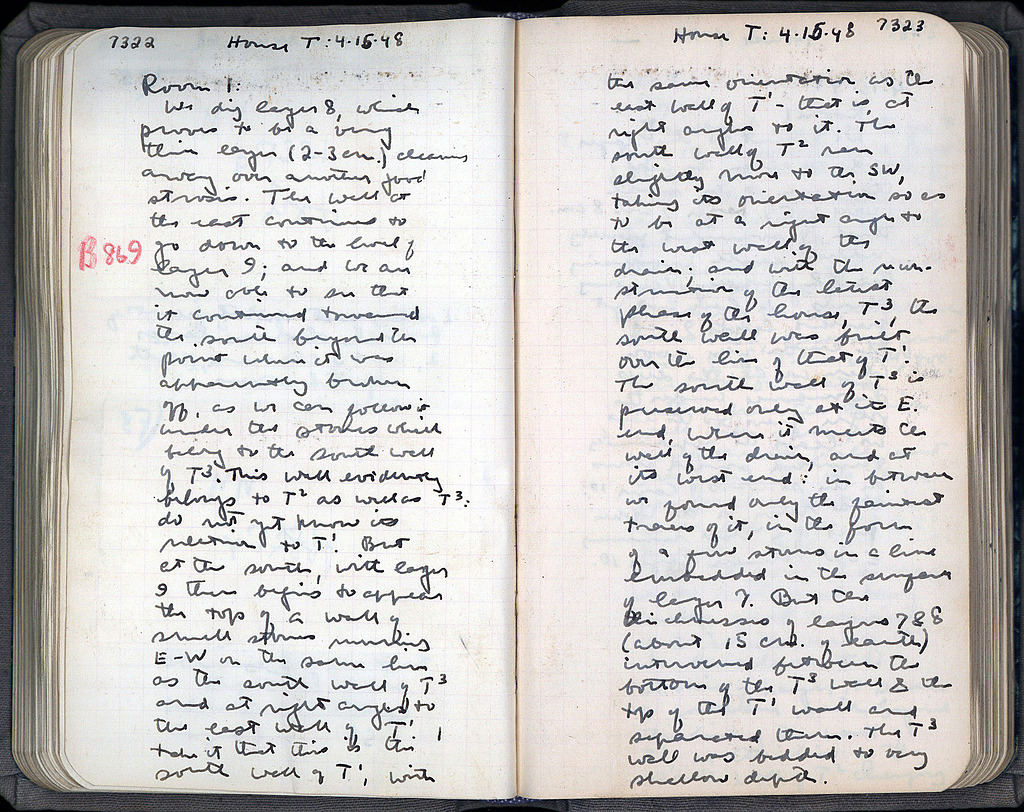 7322 House T: 4·15·48
Room 1:
We dig layer 8, which
proves to be a very
thin layer (2-3 cm.) cleaning
away over another good
strosis. The wall at
the east continues to
go down to the level of
B 869
layer 9; and we are
now able to see that
it continued toward
the south beyond the
point where it was
apparently broken
off, as we can follow it
under the stones which
belong to the south wall
of T³. This wall evidently
belongs to T² as well as T³.
do not yet know its
relation to T¹. But
at the south, with layer
9 there begins to appear
the top of a wall of
small stones running
E-W on the same line
as the south wall of T³
and at right angles to
the east wall of T¹. I
take it that this is the
south wall of T¹, with
House T: 4·15·48 7323
the same orientation as the
east wall of T¹ - that is, at
right angles to it. The
south wall of T² ran
slightly more to the SW,
taking its orientation so as
to be at a right angle to
the west wall of the
drain; and with the con-
struction of the latest
phase of the house, T³, the
south wall was built
over the line of that of T¹.
The south wall of T³ is
preserved only at its E.
end, where it meets the
wall of the drain, and at
its west end: in between
we found only the faintest
traces of it, in the form
of a few stones in a line
embedded in the surface
of layer 7. But the
thicknesses of layers 7 & 8
(about 15 cm. of earth)
intervened between the
bottom of the T³ wall & the
top of the T¹ wall and
separated them. The T³
wall was bedded to very
shallow depth.